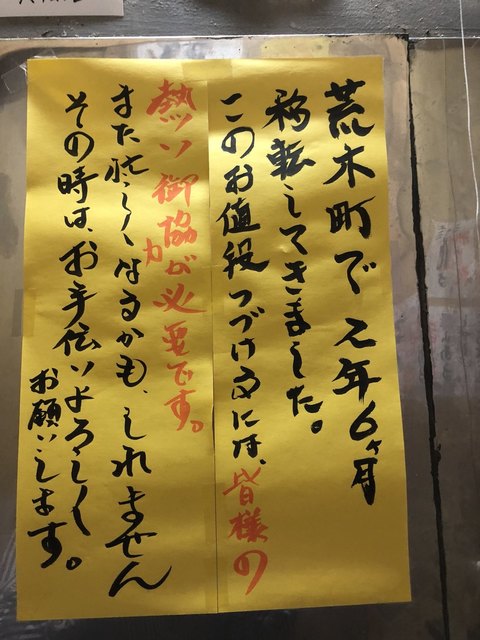 荒木町で2年6ヶ月
移転してきました。
このお値段つづける為には、皆様の
熱い御協力が必要です。
また忙しくなるかも、しれません
その時は、お手伝いよろしく
お願いします。